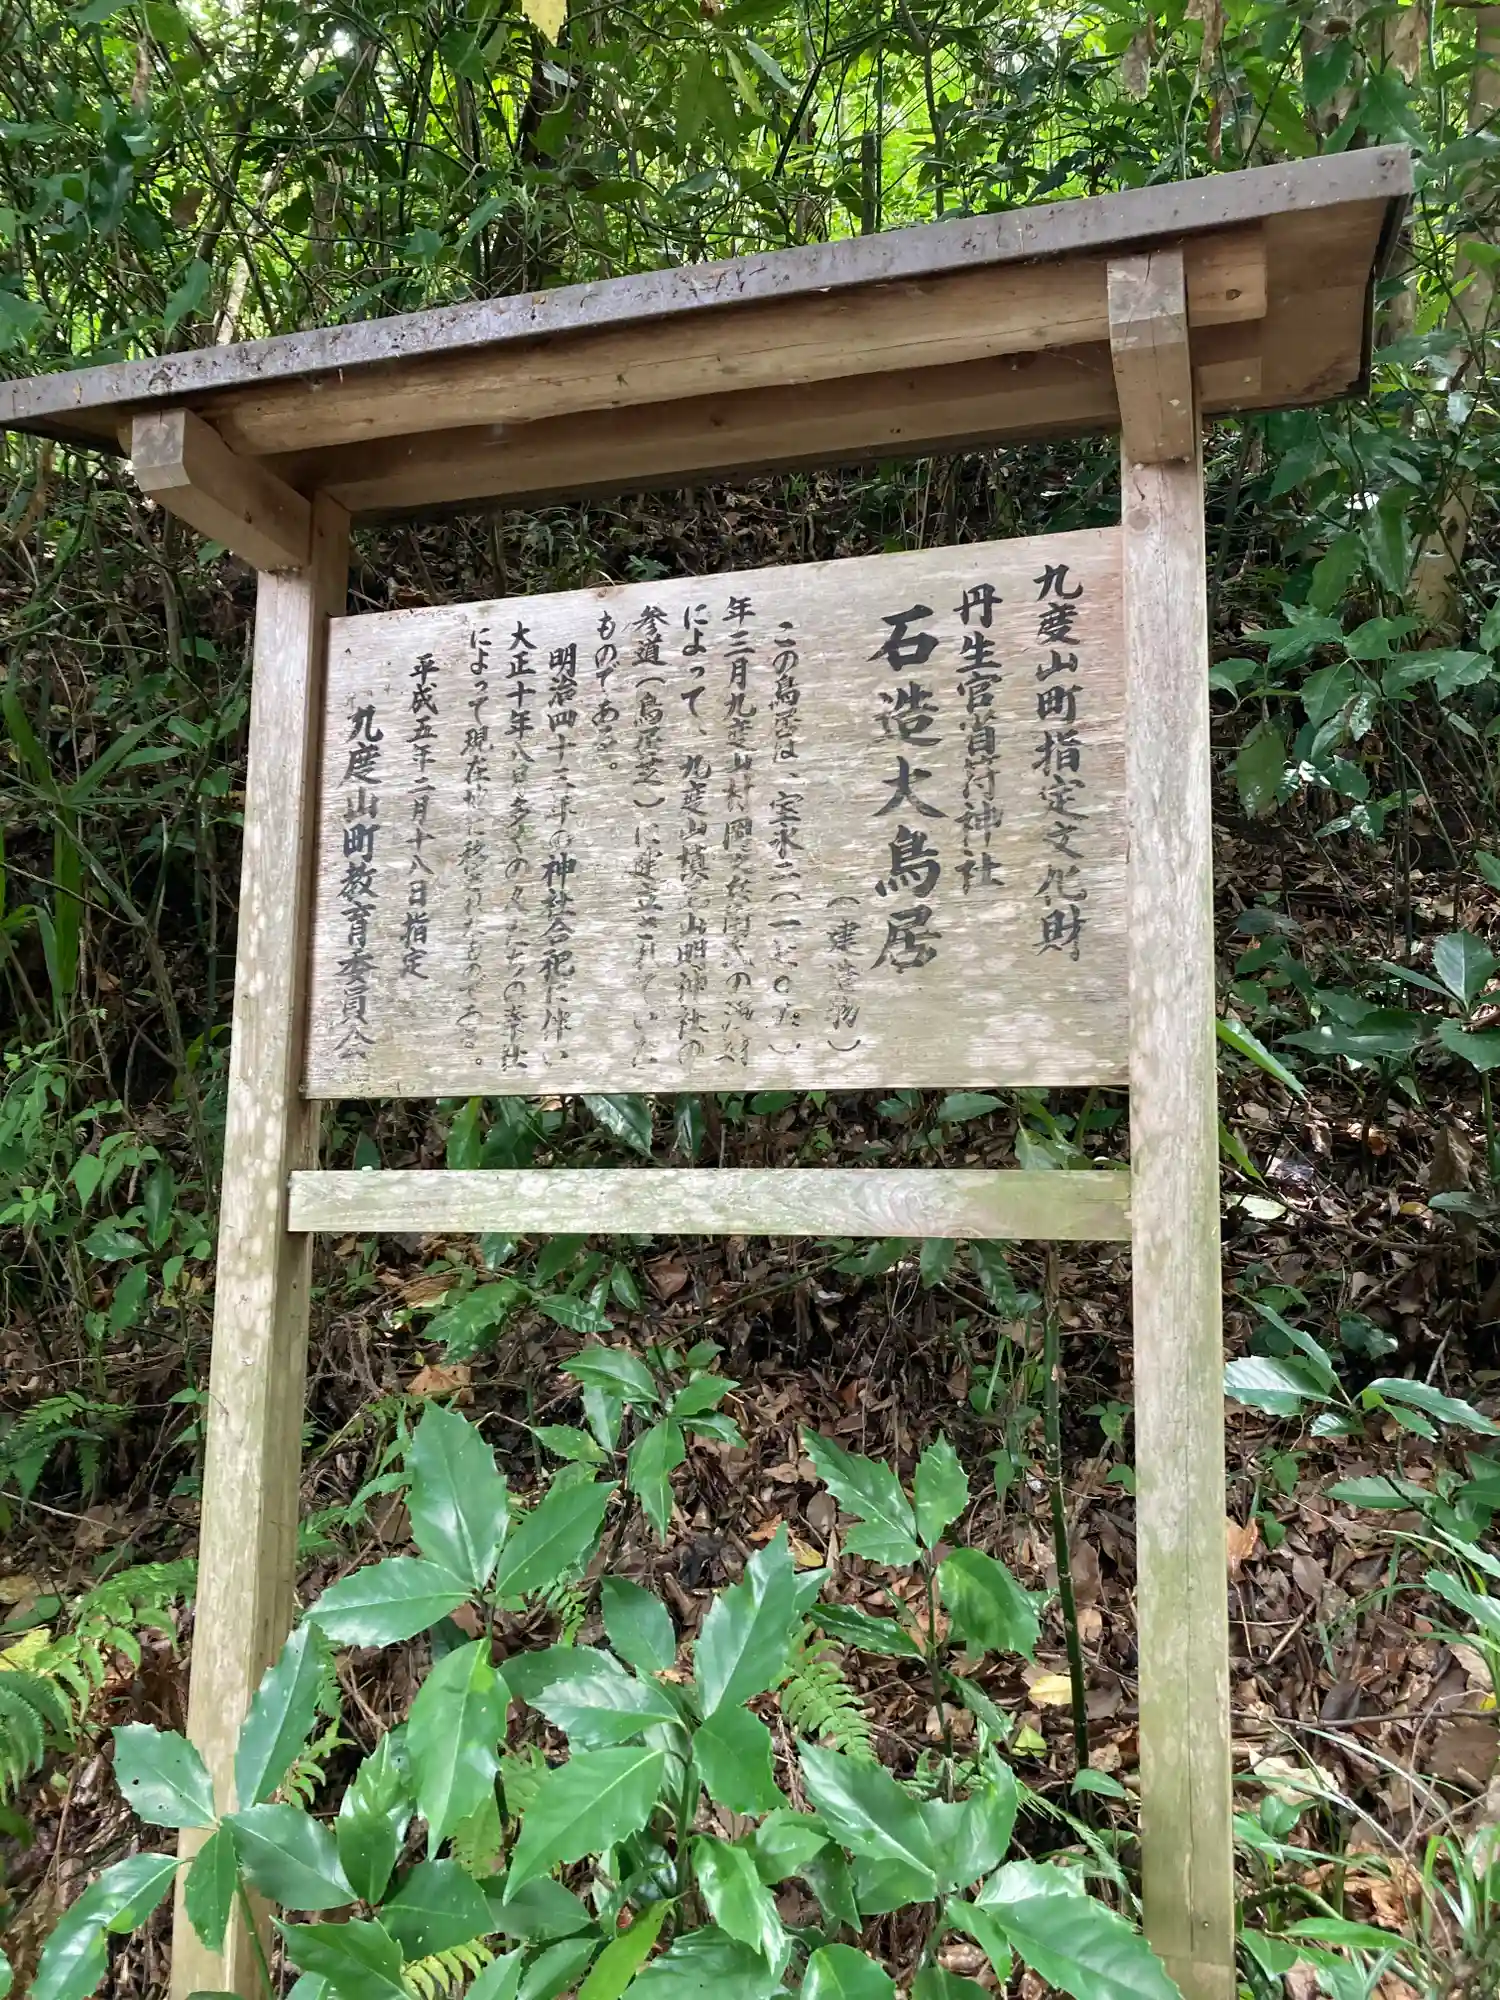 九度山町指定文化財
丹生官省符神社
石造大鳥居
(建造物)
この鳥居は、宝永二(一七〇五)
年三月九度山村岡
によって、九度山槙尾山明神社の
参道(鳥居芝)に建立されていた
ものである。
明治四十三年の神社合祀に伴い
大正十年八月多くの人たちの奉仕
によって現在地に移されたものである。
平成五年二月十八日指定
九度山町教育委員会